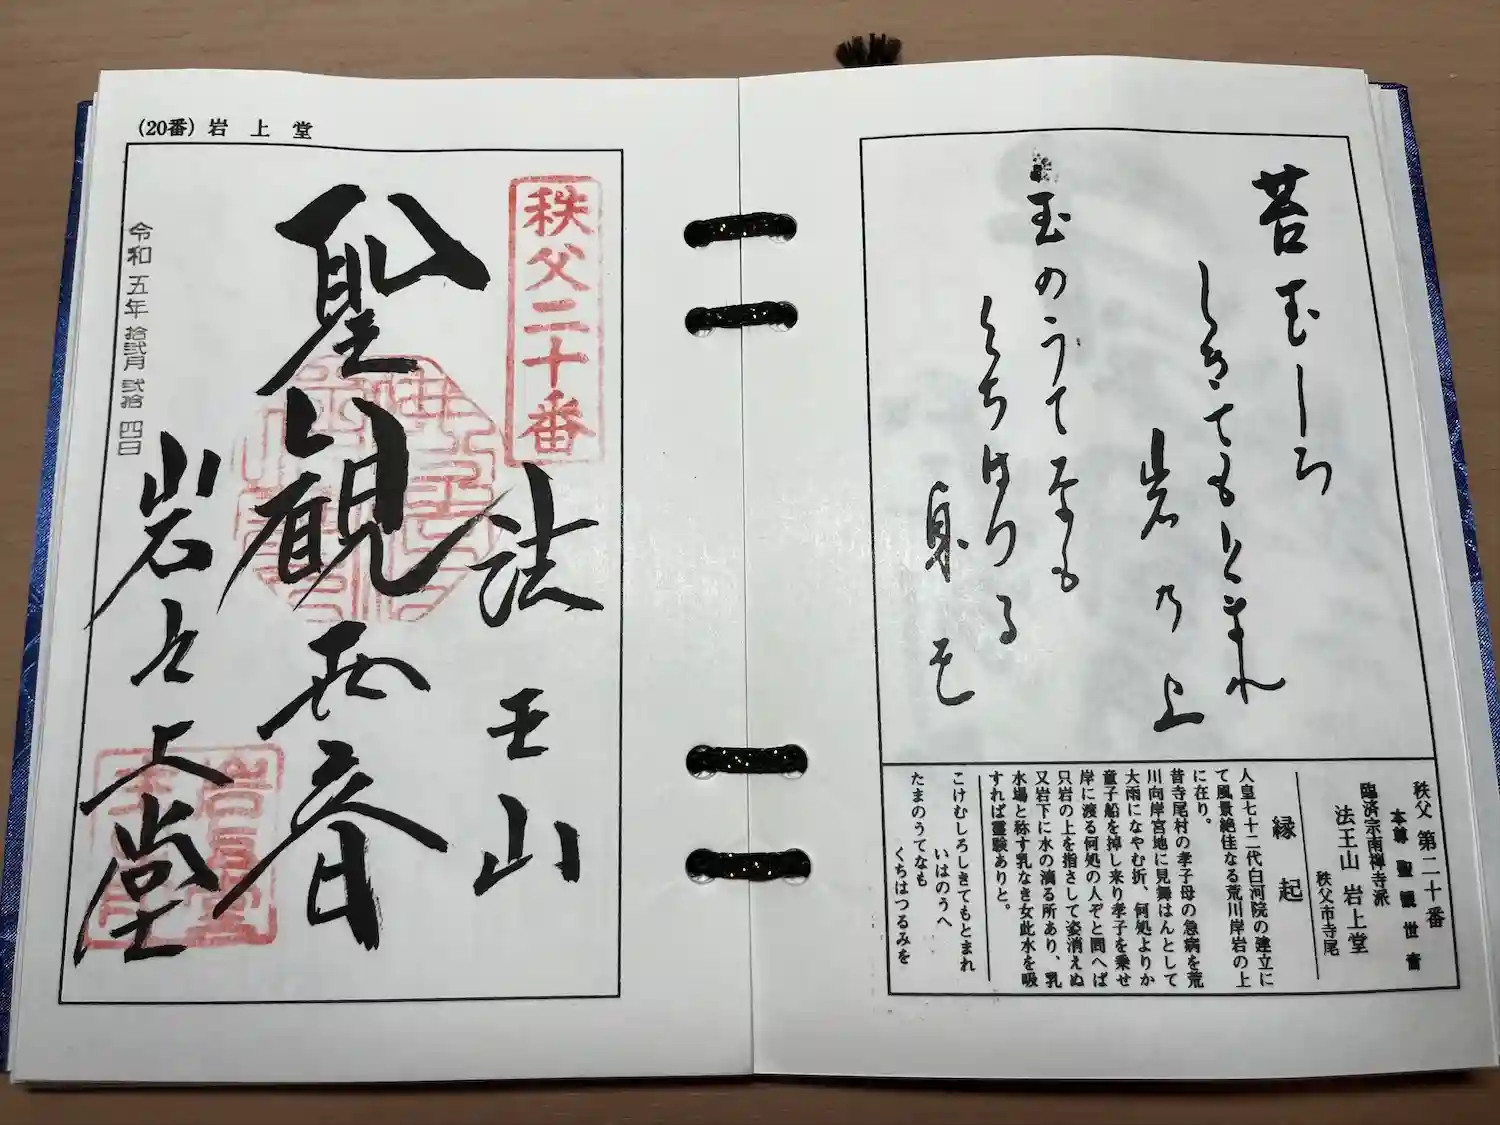 苔むしろ
しきてもとまれ
岩乃上
玉のうてなも
くちはつる
身を
秩父 第二十番
本尊 聖観世音
臨済宗南禅寺派
法王山 岩上堂
秩父市寺尾
縁起
人皇七十二代白河院の建立に
て風景絶佳なる荒川岸岩の上
に在り。
昔寺尾村の孝子母の急病を荒
川向岸宮地に見舞はんとして
大雨になやむ折、何処よりか
童子船を掉し来り孝子を乗せ
岸に渡る何処の人ぞと問へば
只岩の上を指さして姿消えぬ
又岩下に水の滴る所あり、乳
水場と称す乳なき女此水を吸
すれば霊験ありと。
こけむしろしきてもとまれ
いはのうへ
たまのうてなも
くちはつるみを
(20番) 岩上堂
秩父二十番
法王山
聖観世音
岩上堂
令和五年拾弐月弐拾四日